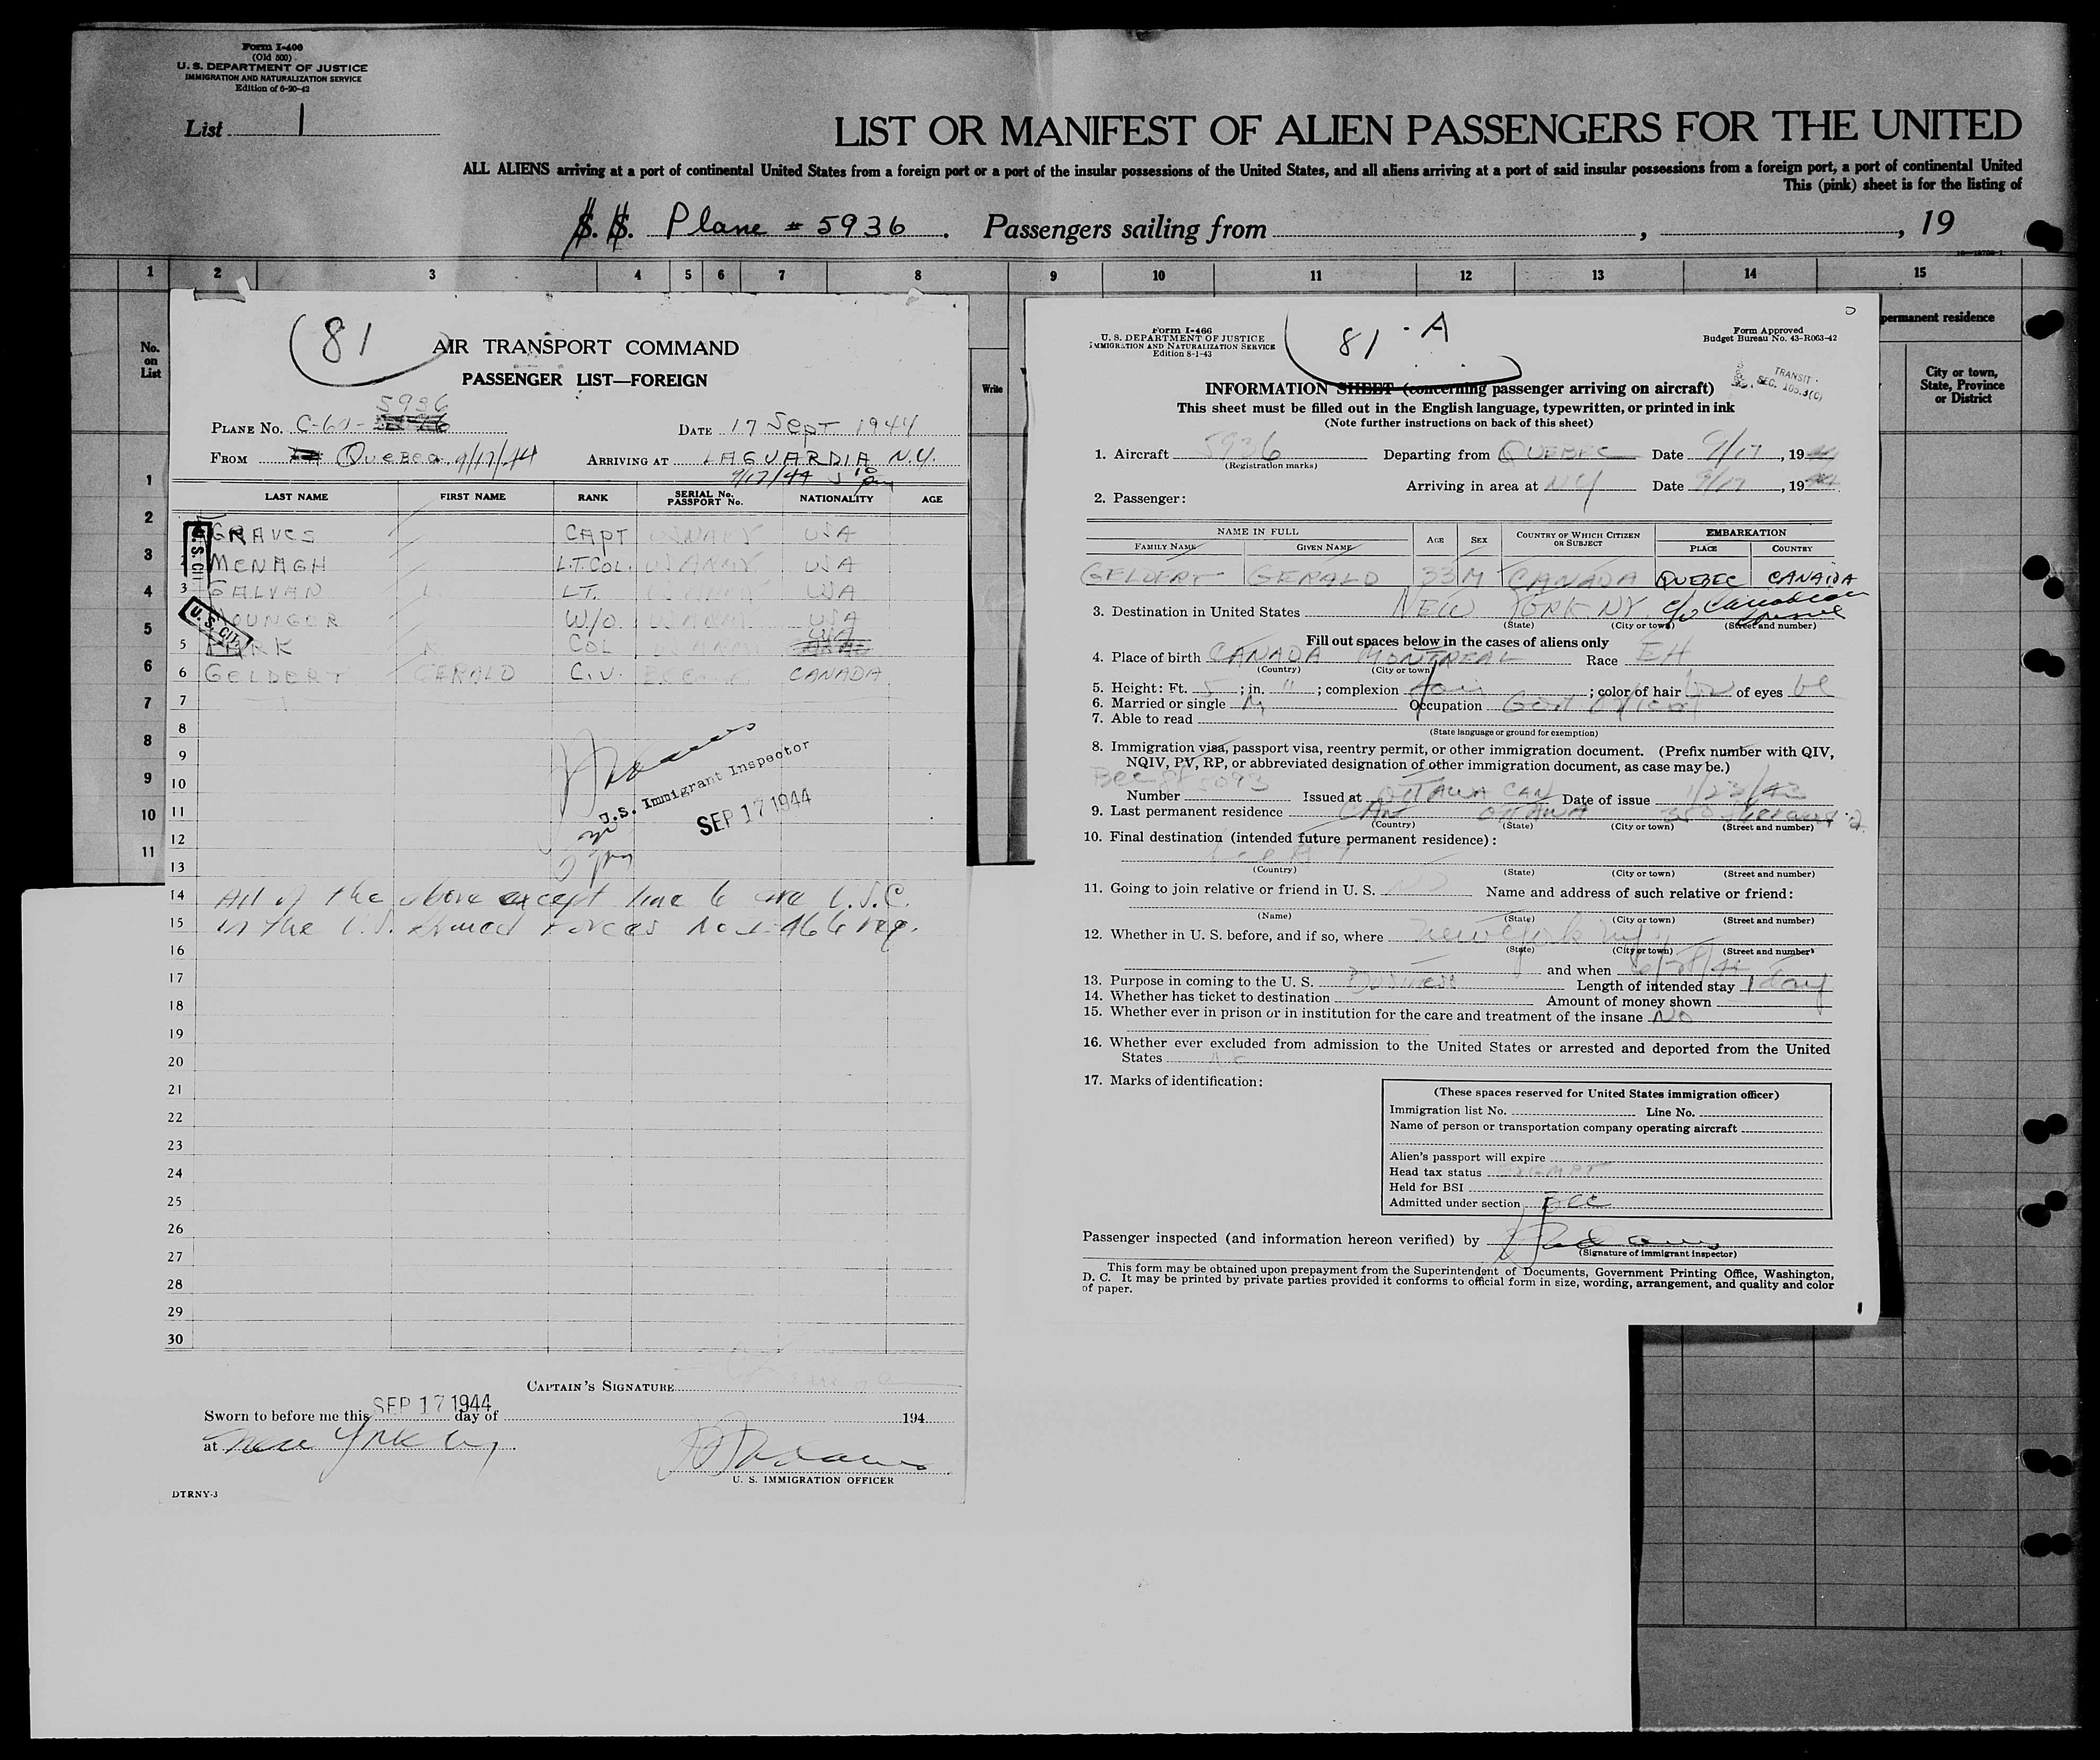 Form I-400
(Old 500)
U. S. DEPARTMENT OF JUSTICE
IMMIGRATION AND NATURALIZATION SERVICE
Edition of 6-20-42
List 1
LIST OR MANIFEST OF ALIEN PASSENGERS FOR THE UNITED
ALL ALIENS arriving at a port of continental United States from a foreign port or a port of the insular possessions of the United States, and all aliens arriving at a port of said insular possessions from a foreign port, a port of continental United
This (pink) sheet is for the listing of
S. S. Plane # 5936. Passengers sailing from , , 19
1 2 3 4 5 6 7 8 9 10 11 12 13 14 15
No. on List
1
2
3
4
5
6
7
8
9
10
11
Write
permanent residence
City or town, State, Province or District
81
AIR TRANSPORT COMMAND
PASSENGER LIST—FOREIGN
5936
PLANE NO. C-60- DATE 17 Sept 1944
FROM QUEBEC 9/17/44 ARRIVING AT LAGUARDIA N.Y.
9/17/44 5 10 pm
LAST NAME FIRST NAME RANK SERIAL No. PASSPORT No. NATIONALITY AGE
U.S. CIT
GRAVES CAPT US ARMY USA
MCNAGH LT.COL. US ARMY USA
3 GALVAN LT. USA
U.S. CIT
YOUNGER W/O US ARMY USA
5 COL US ARMY USA
6 GELDERT GERALD C.V. CANADA
7
8
9
10
11
12
13
U.S. Immigrant Inspector
SEP 17 1944
14 All of the above except line 6 are U.S.C.
15 in the U.S. Armed Forces No I-466 req.
16
17
18
19
20
21
22
23
24
25
26
27
28
29
30
CAPTAIN'S SIGNATURE
Sworn to before me this SEP 17 1944 day of 194
at New York NY
U. S. IMMIGRATION OFFICER
DTRNY-3
Form I-466
U. S. DEPARTMENT OF JUSTICE
IMMIGRATION AND NATURALIZATION SERVICE
Edition 8-1-43
81 - A
Form Approved
Budget Bureau No. 43-R063-42
TRANSIT
SEC. 105.3(C)
INFORMATION SHEET (concerning passenger arriving on aircraft)
This sheet must be filled out in the English language, typewritten, or printed in ink
(Note further instructions on back of this sheet)
1. Aircraft 5936 Departing from QUEBEC Date 9/17, 1944
(Registration marks)
Arriving in area at NY Date 9/17, 1944
2. Passenger:
NAME IN FULL AGE SEX COUNTRY OF WHICH CITIZEN OR SUBJECT EMBARKATION
FAMILY NAME GIVEN NAME PLACE COUNTRY
GELDERT GERALD 33 M CANADA QUEBEC CANADA
3. Destination in United States NEW YORK NY c/o Canadian
(State) (City or town) (Street and number)
Fill out spaces below in the cases of aliens only
4. Place of birth CANADA MONTREAL Race EH
(Country) (City or town)
5. Height: Ft. 5; in. 11; complexion fair; color of hair br of eyes bl
6. Married or single M Occupation Govt Official
7. Able to read
(State language or ground for exemption)
8. Immigration visa, passport visa, reentry permit, or other immigration document. (Prefix number with QIV,
NQIV, PV, RP, or abbreviated designation of other immigration document, as case may be.)
Number BCC Issued at OTTAWA CAN Date of issue 1/23/43
9. Last permanent residence CAN OTTAWA
(Country) (State) (City or town) (Street and number)
10. Final destination (intended future permanent residence):
(Country) (State) (City or town) (Street and number)
11. Going to join relative or friend in U. S. NO Name and address of such relative or friend:
(Name) (State) (City or town) (Street and number)
12. Whether in U. S. before, and if so, where New York NY
(State) (City or town) (Street and number)
and when
13. Purpose in coming to the U. S. Business Length of intended stay 1 day
14. Whether has ticket to destination Amount of money shown
15. Whether ever in prison or in institution for the care and treatment of the insane No
16. Whether ever excluded from admission to the United States or arrested and deported from the United
States No
17. Marks of identification:
(These spaces reserved for United States immigration officer)
Immigration list No. Line No.
Name of person or transportation company operating aircraft
Alien's passport will expire
Head tax status EXEMPT
Held for BSI
Admitted under section BCC
Passenger inspected (and information hereon verified) by
(Signature of immigrant inspector)
This form may be obtained upon prepayment from the Superintendent of Documents, Government Printing Office, Washington,
D. C. It may be printed by private parties provided it conforms to official form in size, wording, arrangement, and quality and color
of paper.